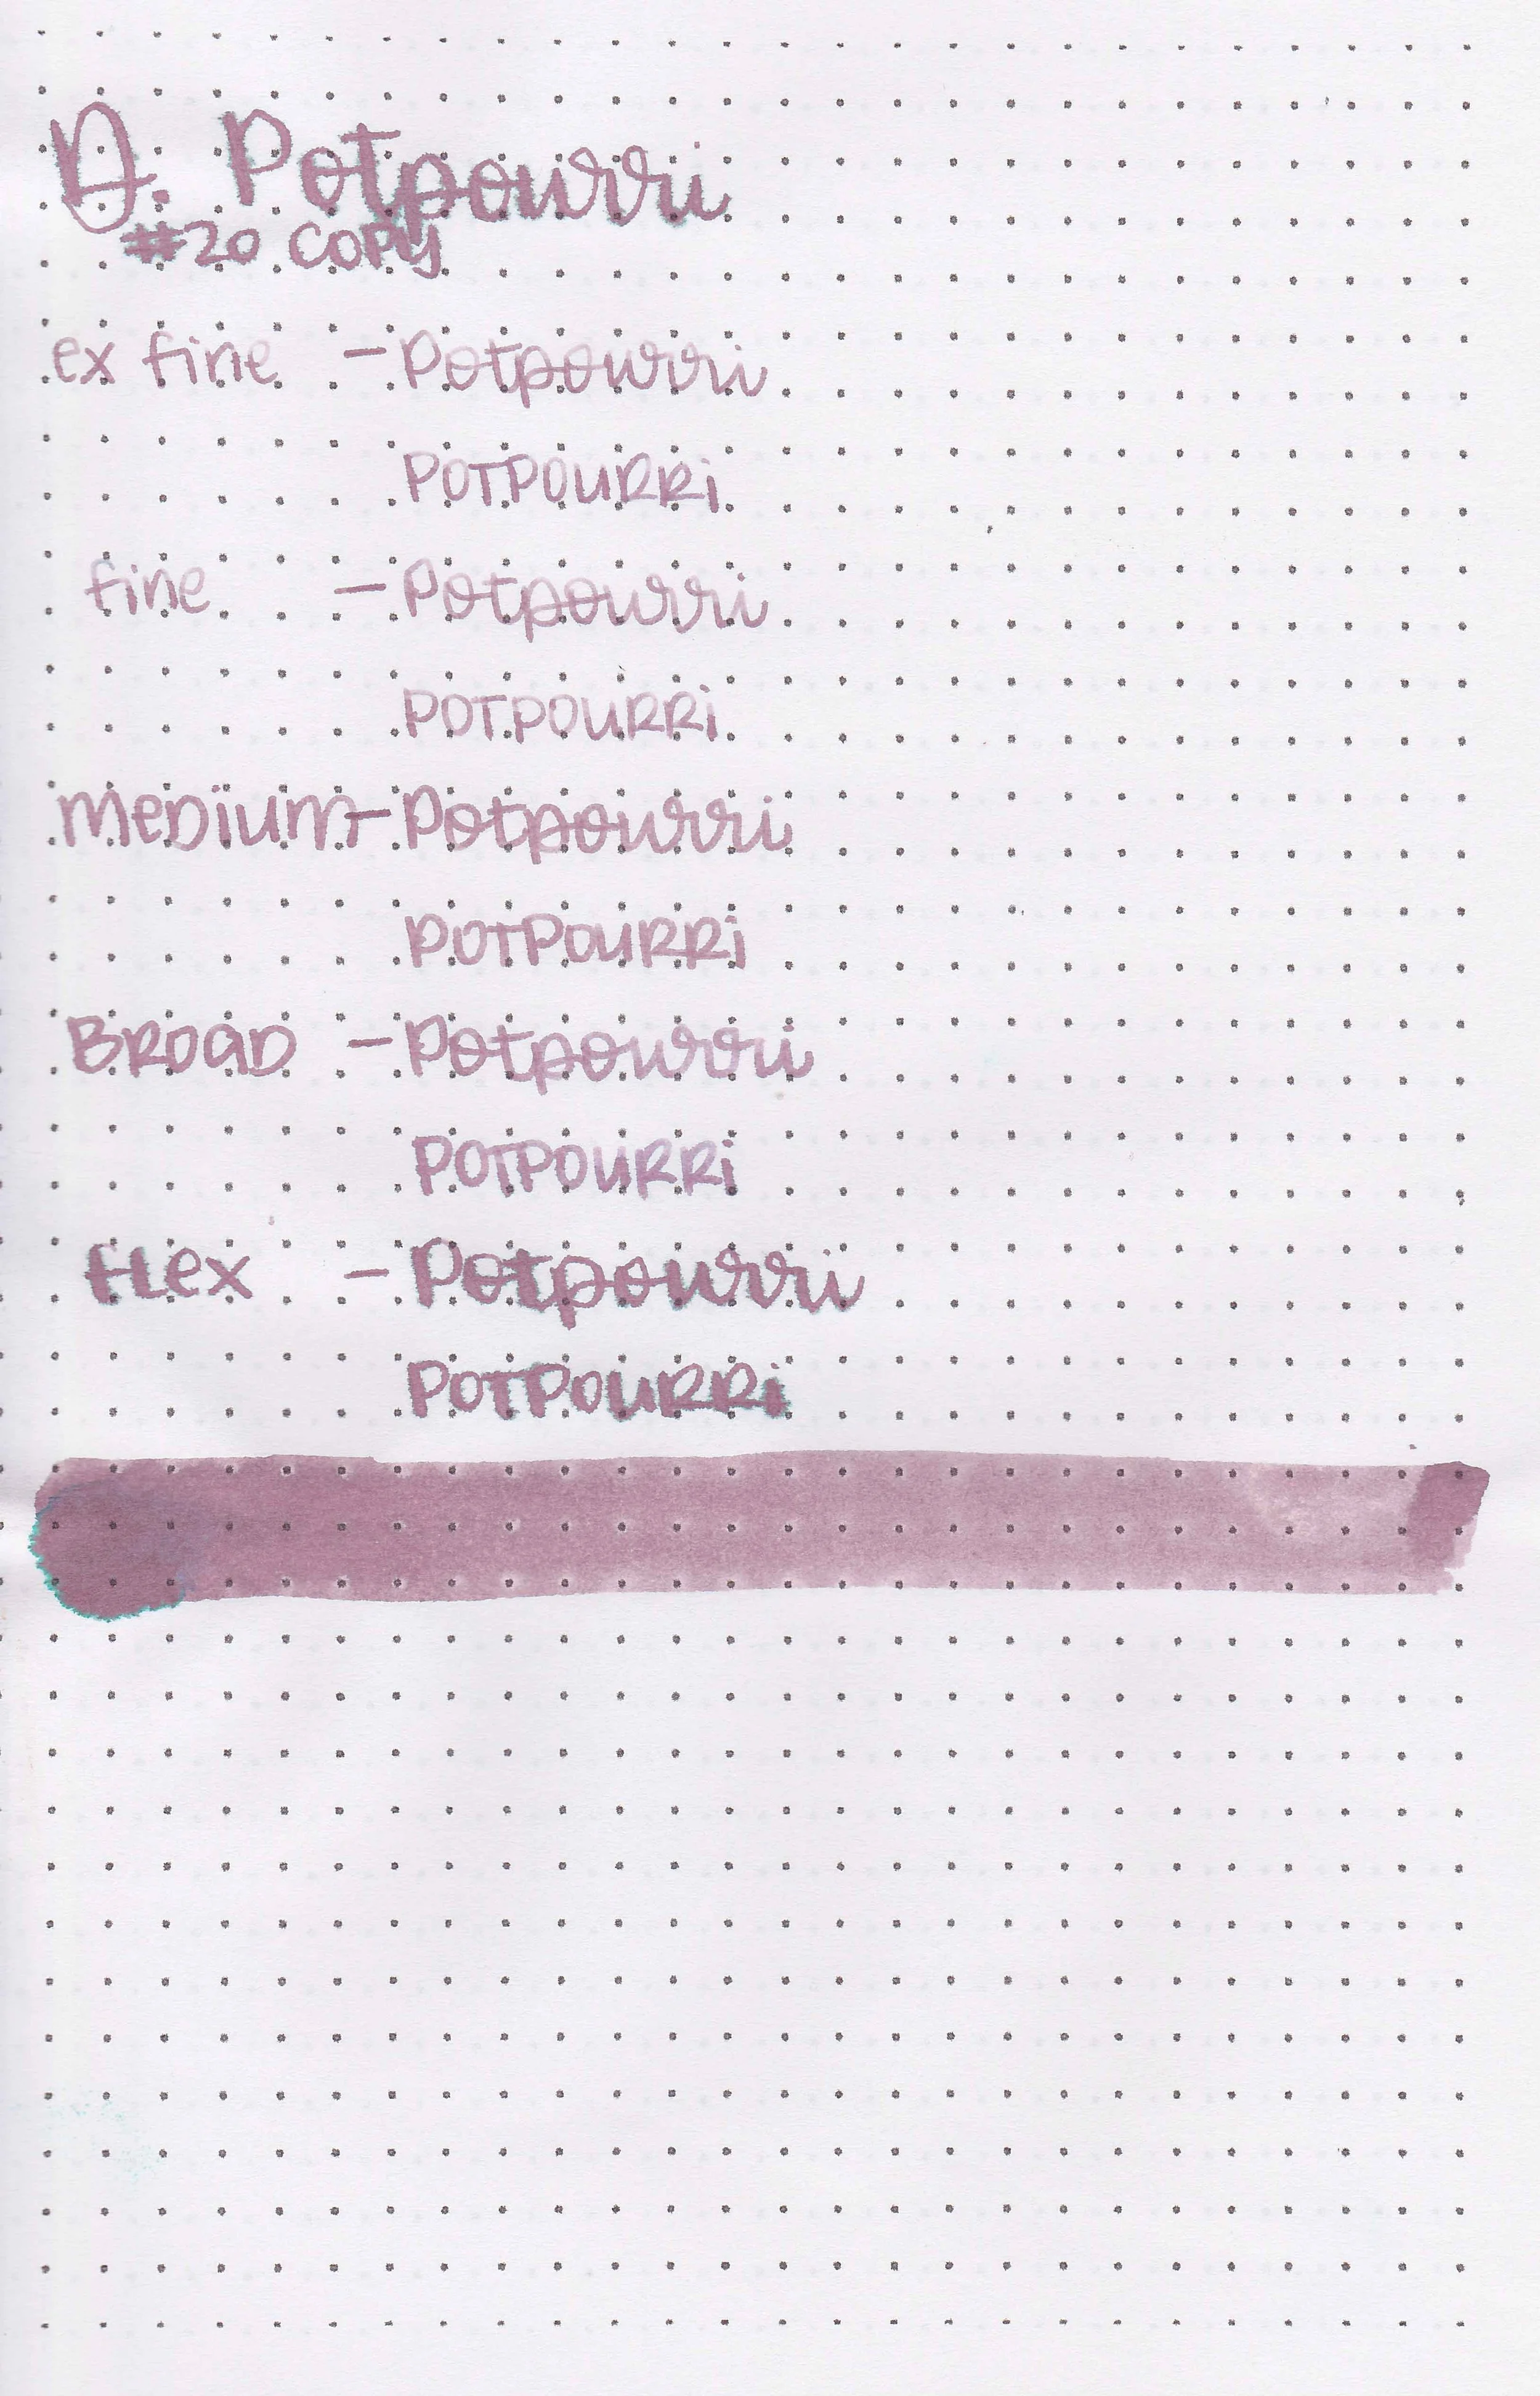 D. Potpourri
#20 COPY
ex fine - Potpourri
POTPOURRi
fine - Potpourri
POTPOURRi
MEDiUM - Potpourri
POTPOURRi
BROAD - Potpourri
POTPOURRi
fLex - Potpourri
POTPOURRi